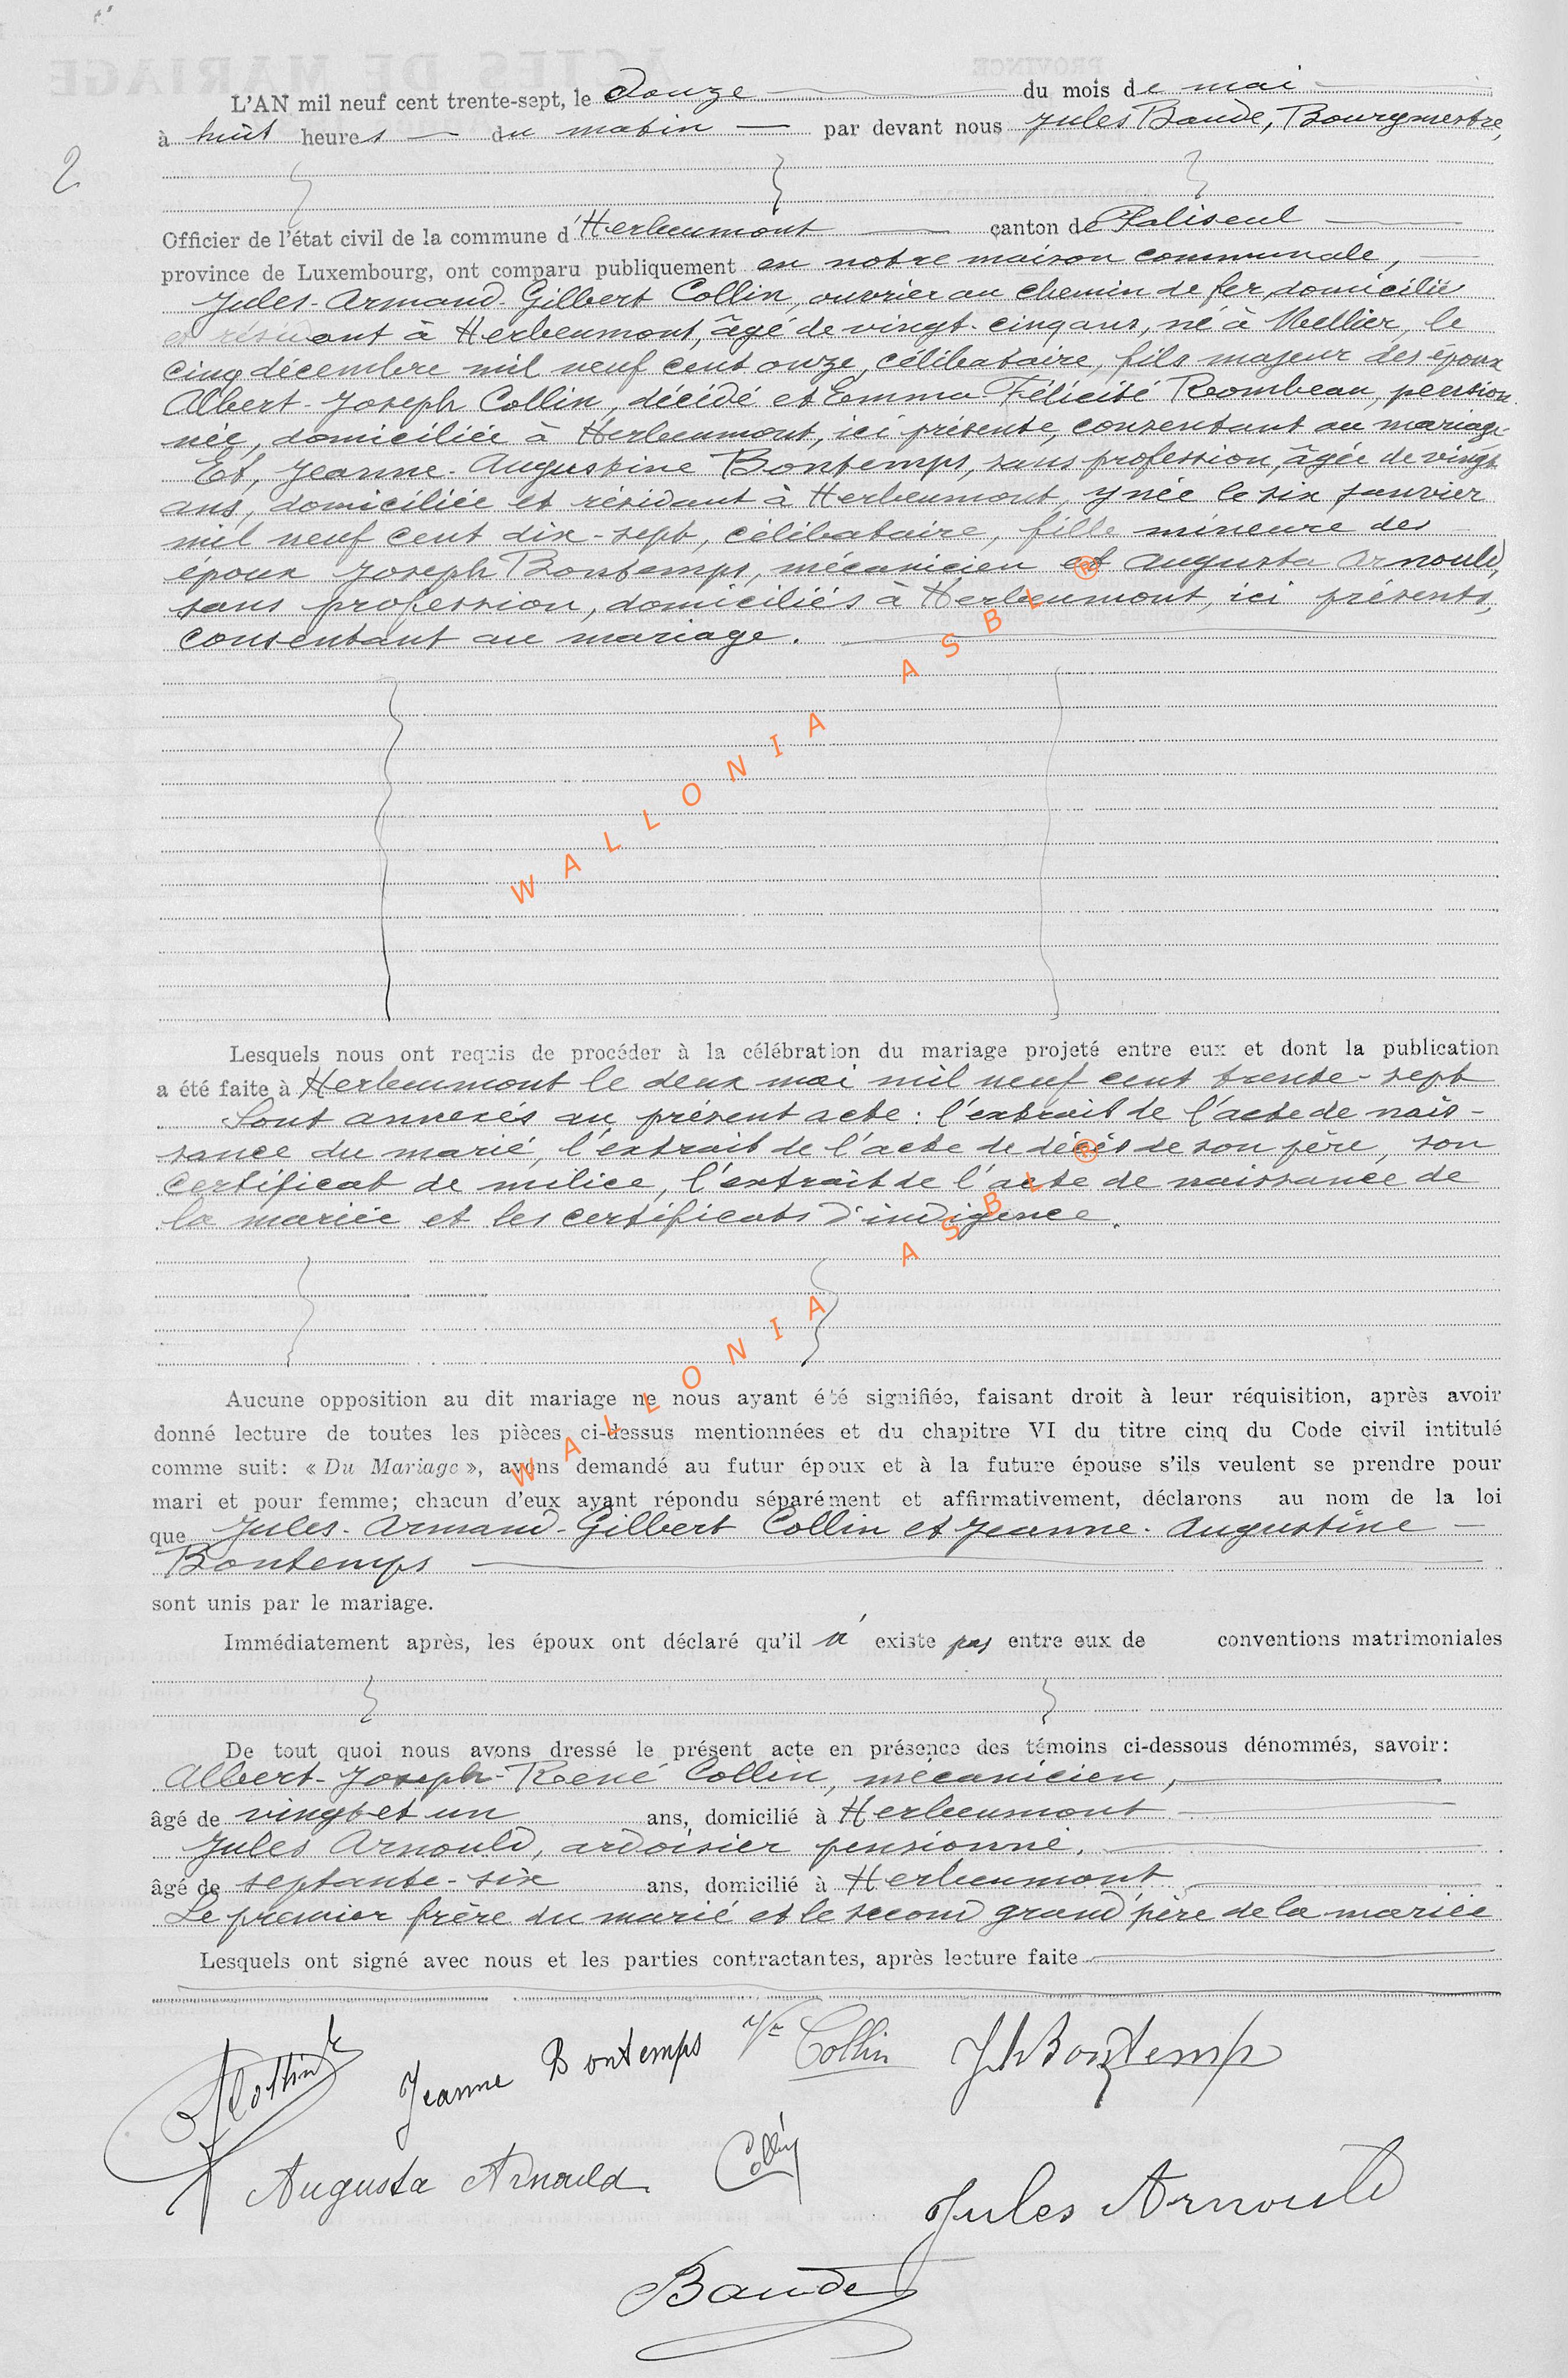 L'AN mil neuf cent trente-sept, le douze du mois de mai
à huit heures du matin par devant nous Jules Baude, Bourgmestre,
2
Officier de l'état civil de la commune d'Herbeumont canton de Paliseul
province de Luxembourg, ont comparu publiquement en notre maison communale,
Jules-Armand-Gilbert Collin, ouvrier au chemin de fer, domicilié
et résidant à Herbeumont, âgé de vingt-cinq ans, né à Mellier, le
cinq décembre mil neuf cent onze, célibataire, fils majeur des époux
Albert-Joseph Collin, décédé et Emma Félicité Rombeau, pension
née, domiciliée à Herbeumont, ici présente, consentant au mariage.
Et, Jeanne-Augustine Bontemps, sans profession, âgée de vingt
ans, domiciliée et résidant à Herbeumont, y née le six janvier
mil neuf cent dix-sept, célibataire, fille mineure des
époux Joseph Bontemps, mécanicien et Augusta Arnould,
sans profession, domiciliés à Herbeumont, ici présents,
consentant au mariage.
WALLONIA ASBL ®
Lesquels nous ont requis de procéder à la célébration du mariage projeté entre eux et dont la publication
a été faite à Herbeumont le deux mai mil neuf cent trente-sept
Sont annexés au présent acte : l'extrait de l'acte de nais-
sance du marié, l'extrait de l'acte de décès de son père, son
certificat de milice, l'extrait de l'acte de naissance de
la mariée et les certificats d'indigence.
WALLONIA ASBL ®
Aucune opposition au dit mariage ne nous ayant été signifiée, faisant droit à leur réquisition, après avoir
donné lecture de toutes les pièces ci-dessus mentionnées et du chapitre VI du titre cinq du Code civil intitulé
comme suit: « Du Mariage », avons demandé au futur époux et à la future épouse s'ils veulent se prendre pour
mari et pour femme; chacun d'eux ayant répondu séparément et affirmativement, déclarons au nom de la loi
que Jules-Armand-Gilbert Collin et Jeanne-Augustine
Bontemps
sont unis par le mariage.
Immédiatement après, les époux ont déclaré qu'il n' existe pas entre eux de conventions matrimoniales
De tout quoi nous avons dressé le présent acte en présence des témoins ci-dessous dénommés, savoir:
Albert-Joseph-René Collin, mécanicien,
âgé de vingt et un ans, domicilié à Herbeumont
Jules Arnould, ardoisier pensionné,
âgé de septante-six ans, domicilié à Herbeumont
Le premier frère du marié et le second grand'père de la mariée
Lesquels ont signé avec nous et les parties contractantes, après lecture faite
Collin Jeanne Bontemps Vve Collin Jh Bontemps
Augusta Arnould Collin Jules Arnould
Baude